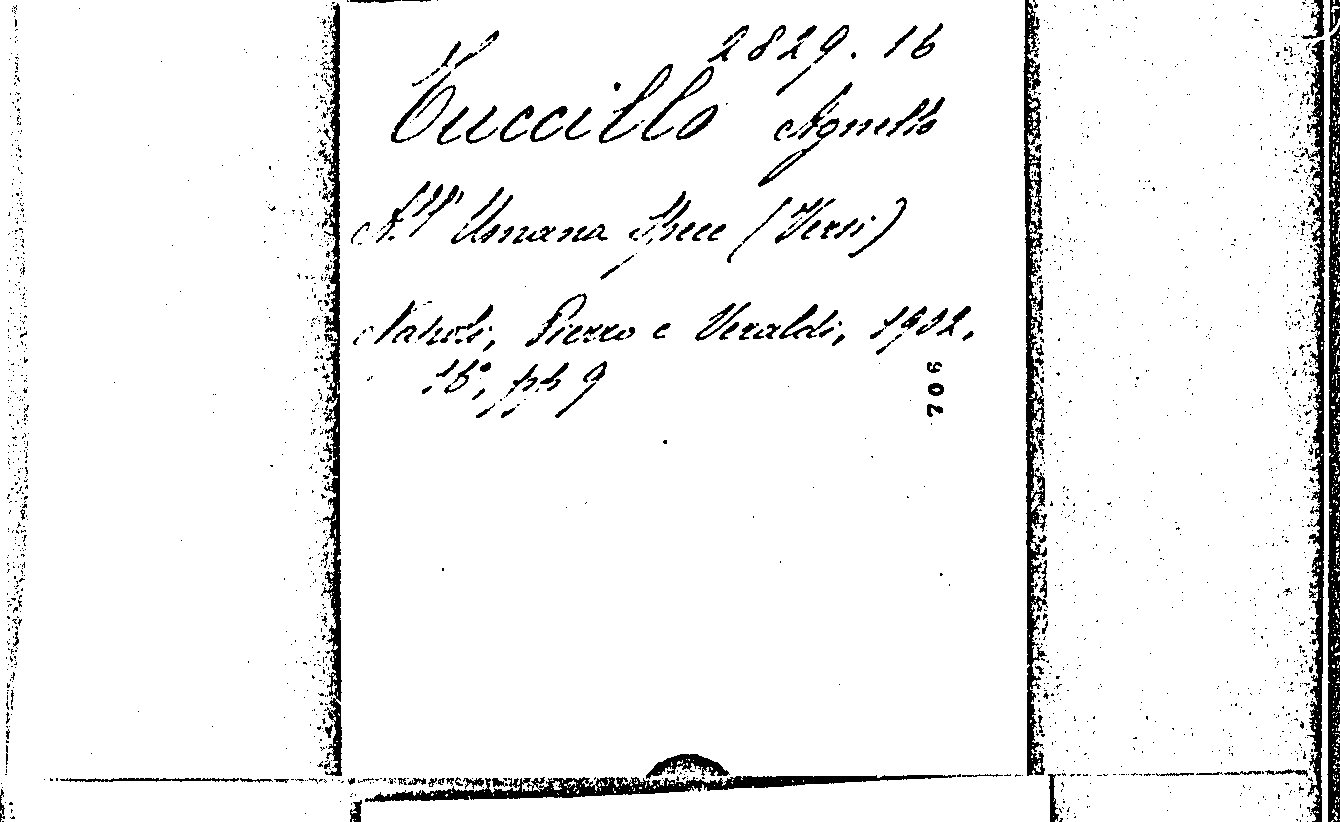 2829. 16
Tuccillo Agnello
All' Umana Spece (Versi)
Napoli, Pierro e Veraldi, 1902,
16°, pp 9
706